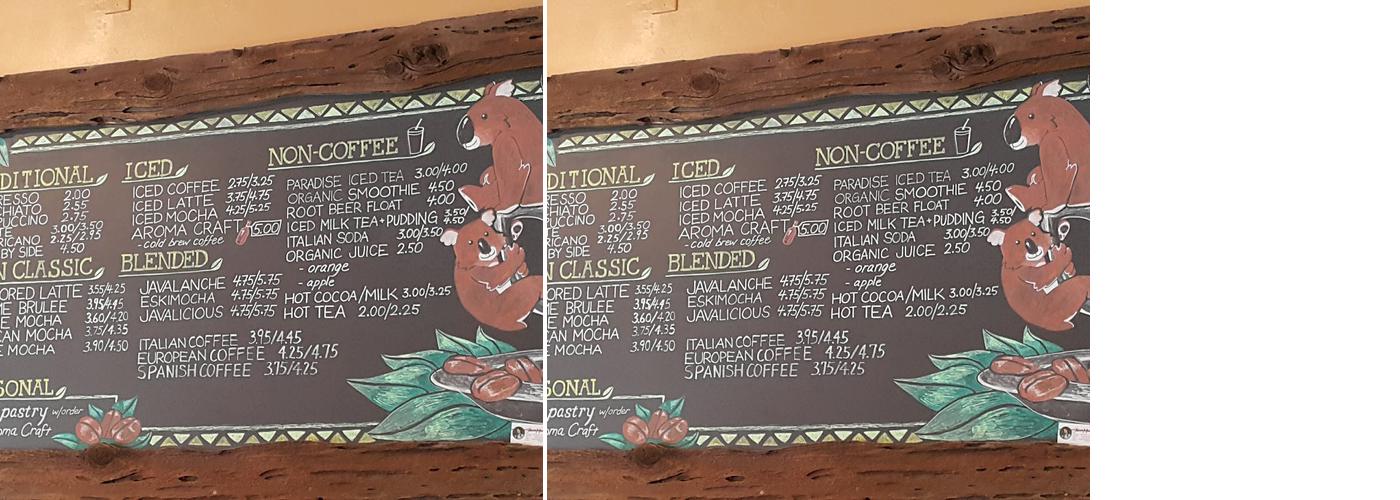 DITIONAL
RESSO 2.00
CHIATO 2.55
PUCCINO 2.75
TE 3.00/3.50
RICANO 2.25/2.95
BY SIDE 4.50
N CLASSIC
ORED LATTE 3.55/4.25
ME BRULEE 3.95/4.45
E MOCHA 3.60/4.20
CAN MOCHA 3.75/4.35
E MOCHA 3.90/4.50
SONAL
pastry w/order
oma Craft
ICED
ICED COFFEE 2.75/3.25
ICED LATTE 3.75/4.75
ICED MOCHA 4.25/5.25
AROMA CRAFT 5.00
- cold brew coffee
BLENDED
JAVALANCHE 4.75/5.75
ESKIMOCHA 4.75/5.75
JAVALICIOUS 4.75/5.75
ITALIAN COFFEE 3.95/4.45
EUROPEAN COFFEE 4.25/4.75
SPANISH COFFEE 3.75/4.25
NON-COFFEE
PARADISE ICED TEA 3.00/4.00
ORGANIC SMOOTHIE 4.50
ROOT BEER FLOAT 4.00
ICED MILK TEA+PUDDING 3.50/4.50
ITALIAN SODA 3.00/3.50
ORGANIC JUICE 2.50
- orange
- apple
HOT COCOA/MILK 3.00/3.25
HOT TEA 2.00/2.25
DITIONAL
RESSO 2.00
CHIATO 2.55
PUCCINO 2.75
TE 3.00/3.50
RICANO 2.25/2.95
BY SIDE 4.50
N CLASSIC
ORED LATTE 3.55/4.25
ME BRULEE 3.95/4.45
E MOCHA 3.60/4.20
CAN MOCHA 3.75/4.35
E MOCHA 3.90/4.50
SONAL
pastry w/order
oma Craft
ICED
ICED COFFEE 2.75/3.25
ICED LATTE 3.75/4.75
ICED MOCHA 4.25/5.25
AROMA CRAFT 5.00
- cold brew coffee
BLENDED
JAVALANCHE 4.75/5.75
ESKIMOCHA 4.75/5.75
JAVALICIOUS 4.75/5.75
ITALIAN COFFEE 3.95/4.45
EUROPEAN COFFEE 4.25/4.75
SPANISH COFFEE 3.75/4.25
NON-COFFEE
PARADISE ICED TEA 3.00/4.00
ORGANIC SMOOTHIE 4.50
ROOT BEER FLOAT 4.00
ICED MILK TEA+PUDDING 3.50/4.50
ITALIAN SODA 3.00/3.50
ORGANIC JUICE 2.50
- orange
- apple
HOT COCOA/MILK 3.00/3.25
HOT TEA 2.00/2.25